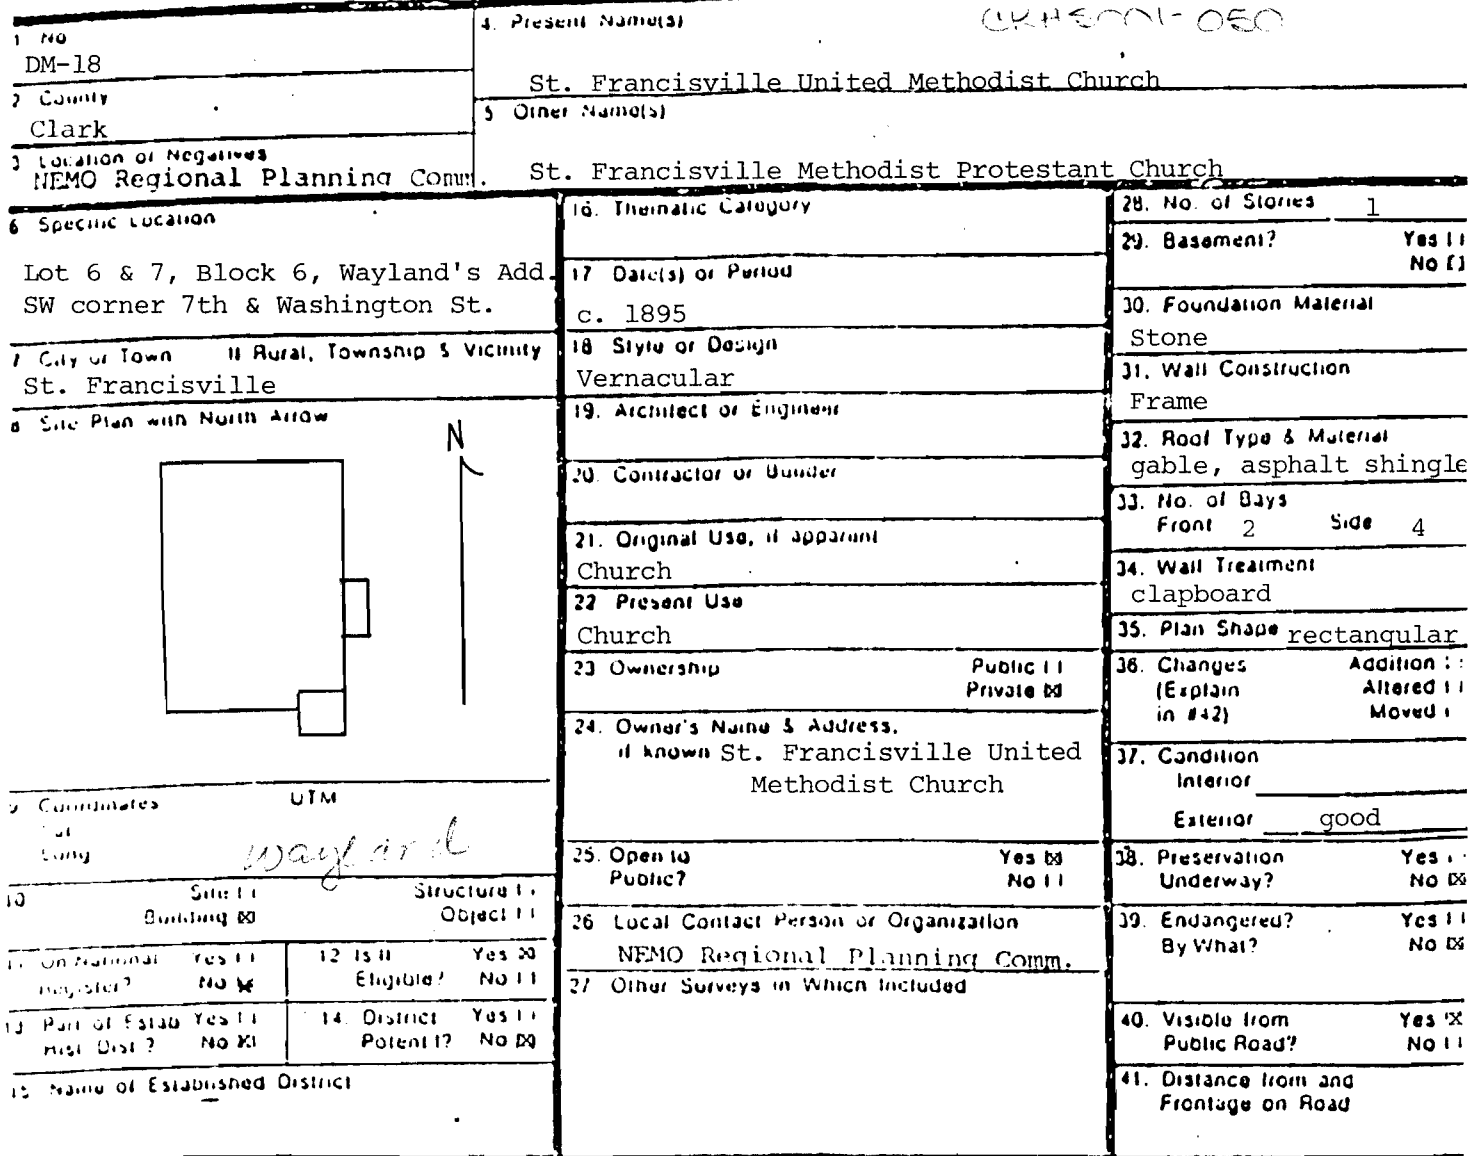 1 No
DM-18
2 County
Clark
3 Location of Negatives
NEMO Regional Planning Comm.
4. Present Name(s)
St. Francisville United Methodist Church
5 Other Name(s)
St. Francisville Methodist Protestant Church
6 Specific Location
Lot 6 & 7, Block 6, Wayland's Add.
SW corner 7th & Washington St.
7 City or Town If Rural, Township & Vicinity
St. Francisville
8 Site Plan with North Arrow
N
9 Coordinates UTM
Lat
Long
Wayland
10 Site [ ] Structure [ ]
Building [X] Object [ ]
11 On National Yes [ ]
Register? No [X]
12 Is it Yes [X]
Eligible? No [ ]
13 Part of Estab Yes [ ]
Hist Dist? No [X]
14. District Yes [ ]
Potent'l? No [X]
15 Name of Established District
16. Thematic Category
17 Date(s) or Period
c. 1895
18 Style or Design
Vernacular
19. Architect or Engineer
20. Contractor or Builder
21. Original Use, if apparent
Church
22 Present Use
Church
23 Ownership Public [ ]
Private [X]
24. Owner's Name & Address,
if known St. Francisville United
Methodist Church
25. Open to Yes [X]
Public? No [ ]
26 Local Contact Person or Organization
NEMO Regional Planning Comm.
27 Other Surveys in Which Included
28. No. of Stories 1
29. Basement? Yes [ ]
No [ ]
30. Foundation Material
Stone
31. Wall Construction
Frame
32. Roof Type & Material
gable, asphalt shingle
33. No. of Bays
Front 2 Side 4
34. Wall Treatment
clapboard
35. Plan Shape rectangular
36. Changes Addition [ ]
(Explain Altered [ ]
in #42) Moved [ ]
37. Condition
Interior
Exterior good
38. Preservation Yes [ ]
Underway? No [X]
39. Endangered? Yes [ ]
By What? No [X]
40. Visible from Yes [X]
Public Road? No [ ]
41. Distance from and
Frontage on Road